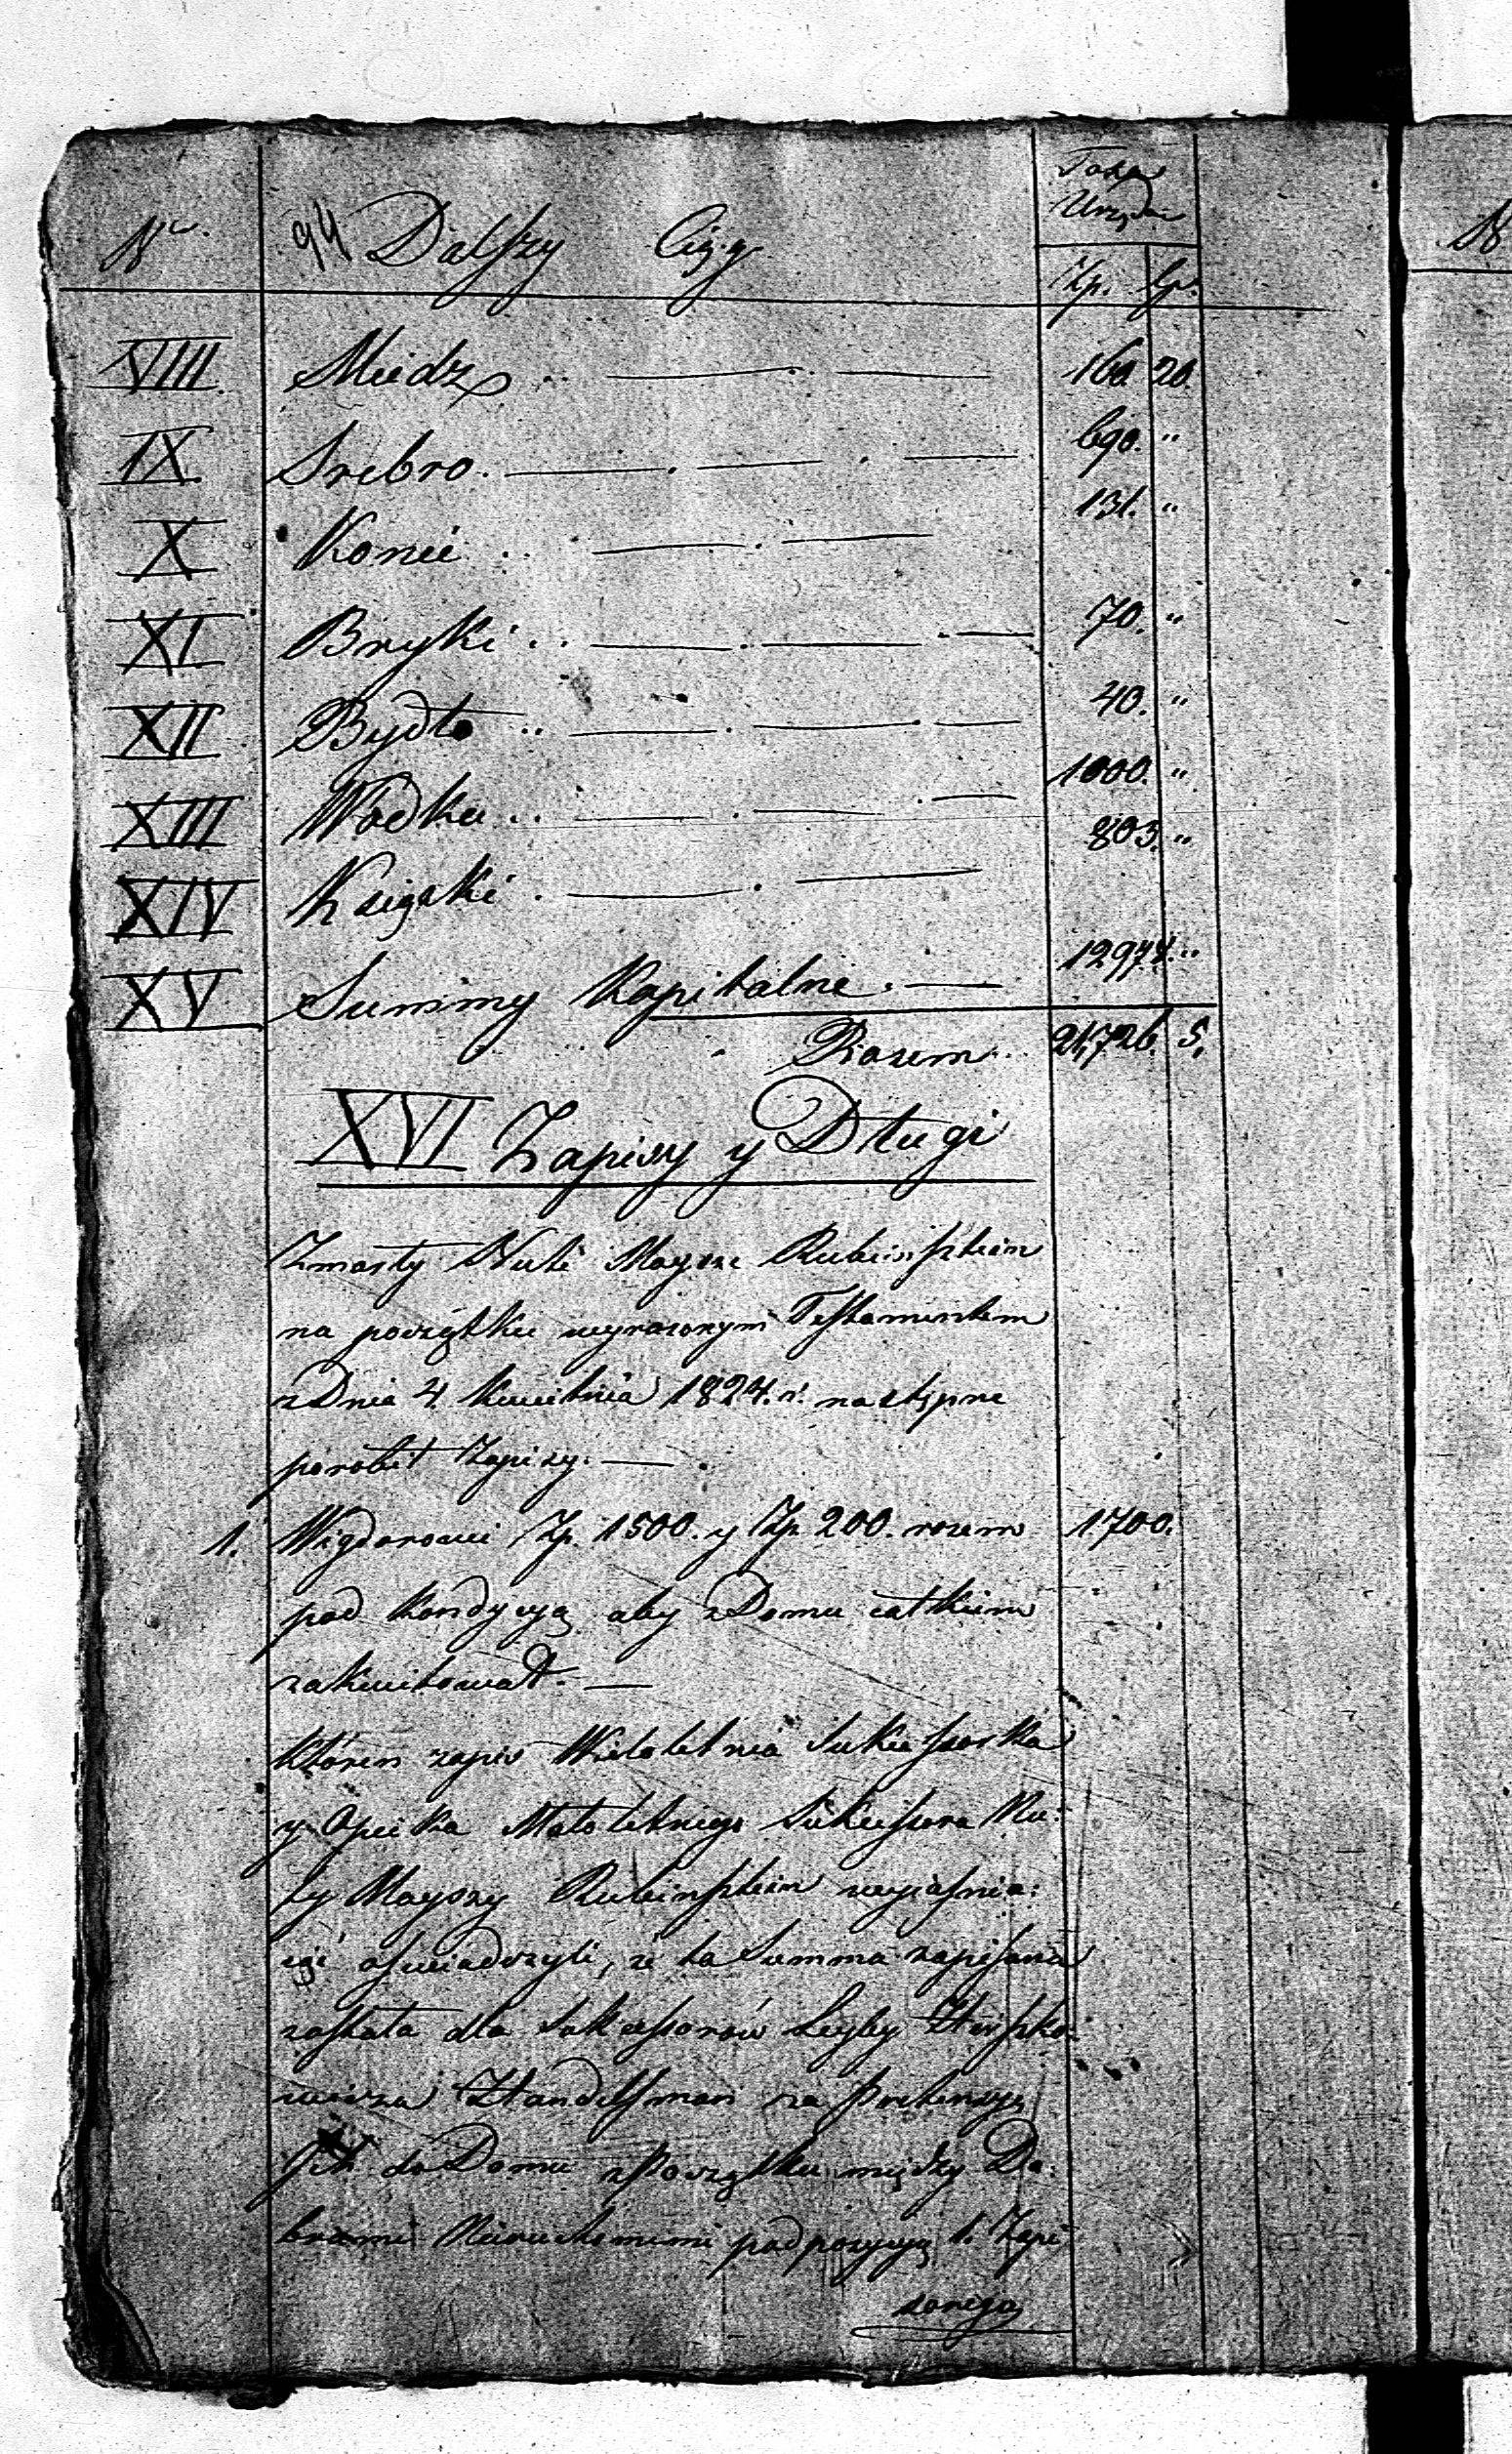 Taxa
Urzęd:
Nr. 94 Dalszy Ciąg
Zp. gr.
VIII Miedz .. — . — 160. 20.
IX Srebro. — . — . — 690. "
X Konie .. — . — 131. "
XI Bryki .. — . — . — 70. "
XII Bydło .. — . — . — 40. "
XIII Wodka .. — . — . — 1000. "
XIV Książki . — . — 803. "
XV Summy Kapitalne . — 12974. "
Razem .. 21,726. 5.
XVI Zapisy y Długi
Zmarły Nute Moysze Rubinsztein
na początku wyrazonym Testamentem
z Dnia 4 Kwietnia 1824. r. następne
porobił Zapisy. — .
1. Wigdorowi Zp. 1500. y Zp 200. razem 1700.
pod kondycyą aby z Domu całkiem
zakwitował. —
któren zapis Wieloletnia Sukcessorka
y Opieka Małoletniego Sukcessora Nu:
ty Moyszy Rubinsztein wyiasnia:
iąc oswiadczyli, że ta Summa zapisana
została dla Sukcessorów Leyby Herszko:
wicza Handelsman za pretensyą
do Domu z Początku między Do:
brami Nieruchomemi pod pozycyą 1. Zapi
sanego